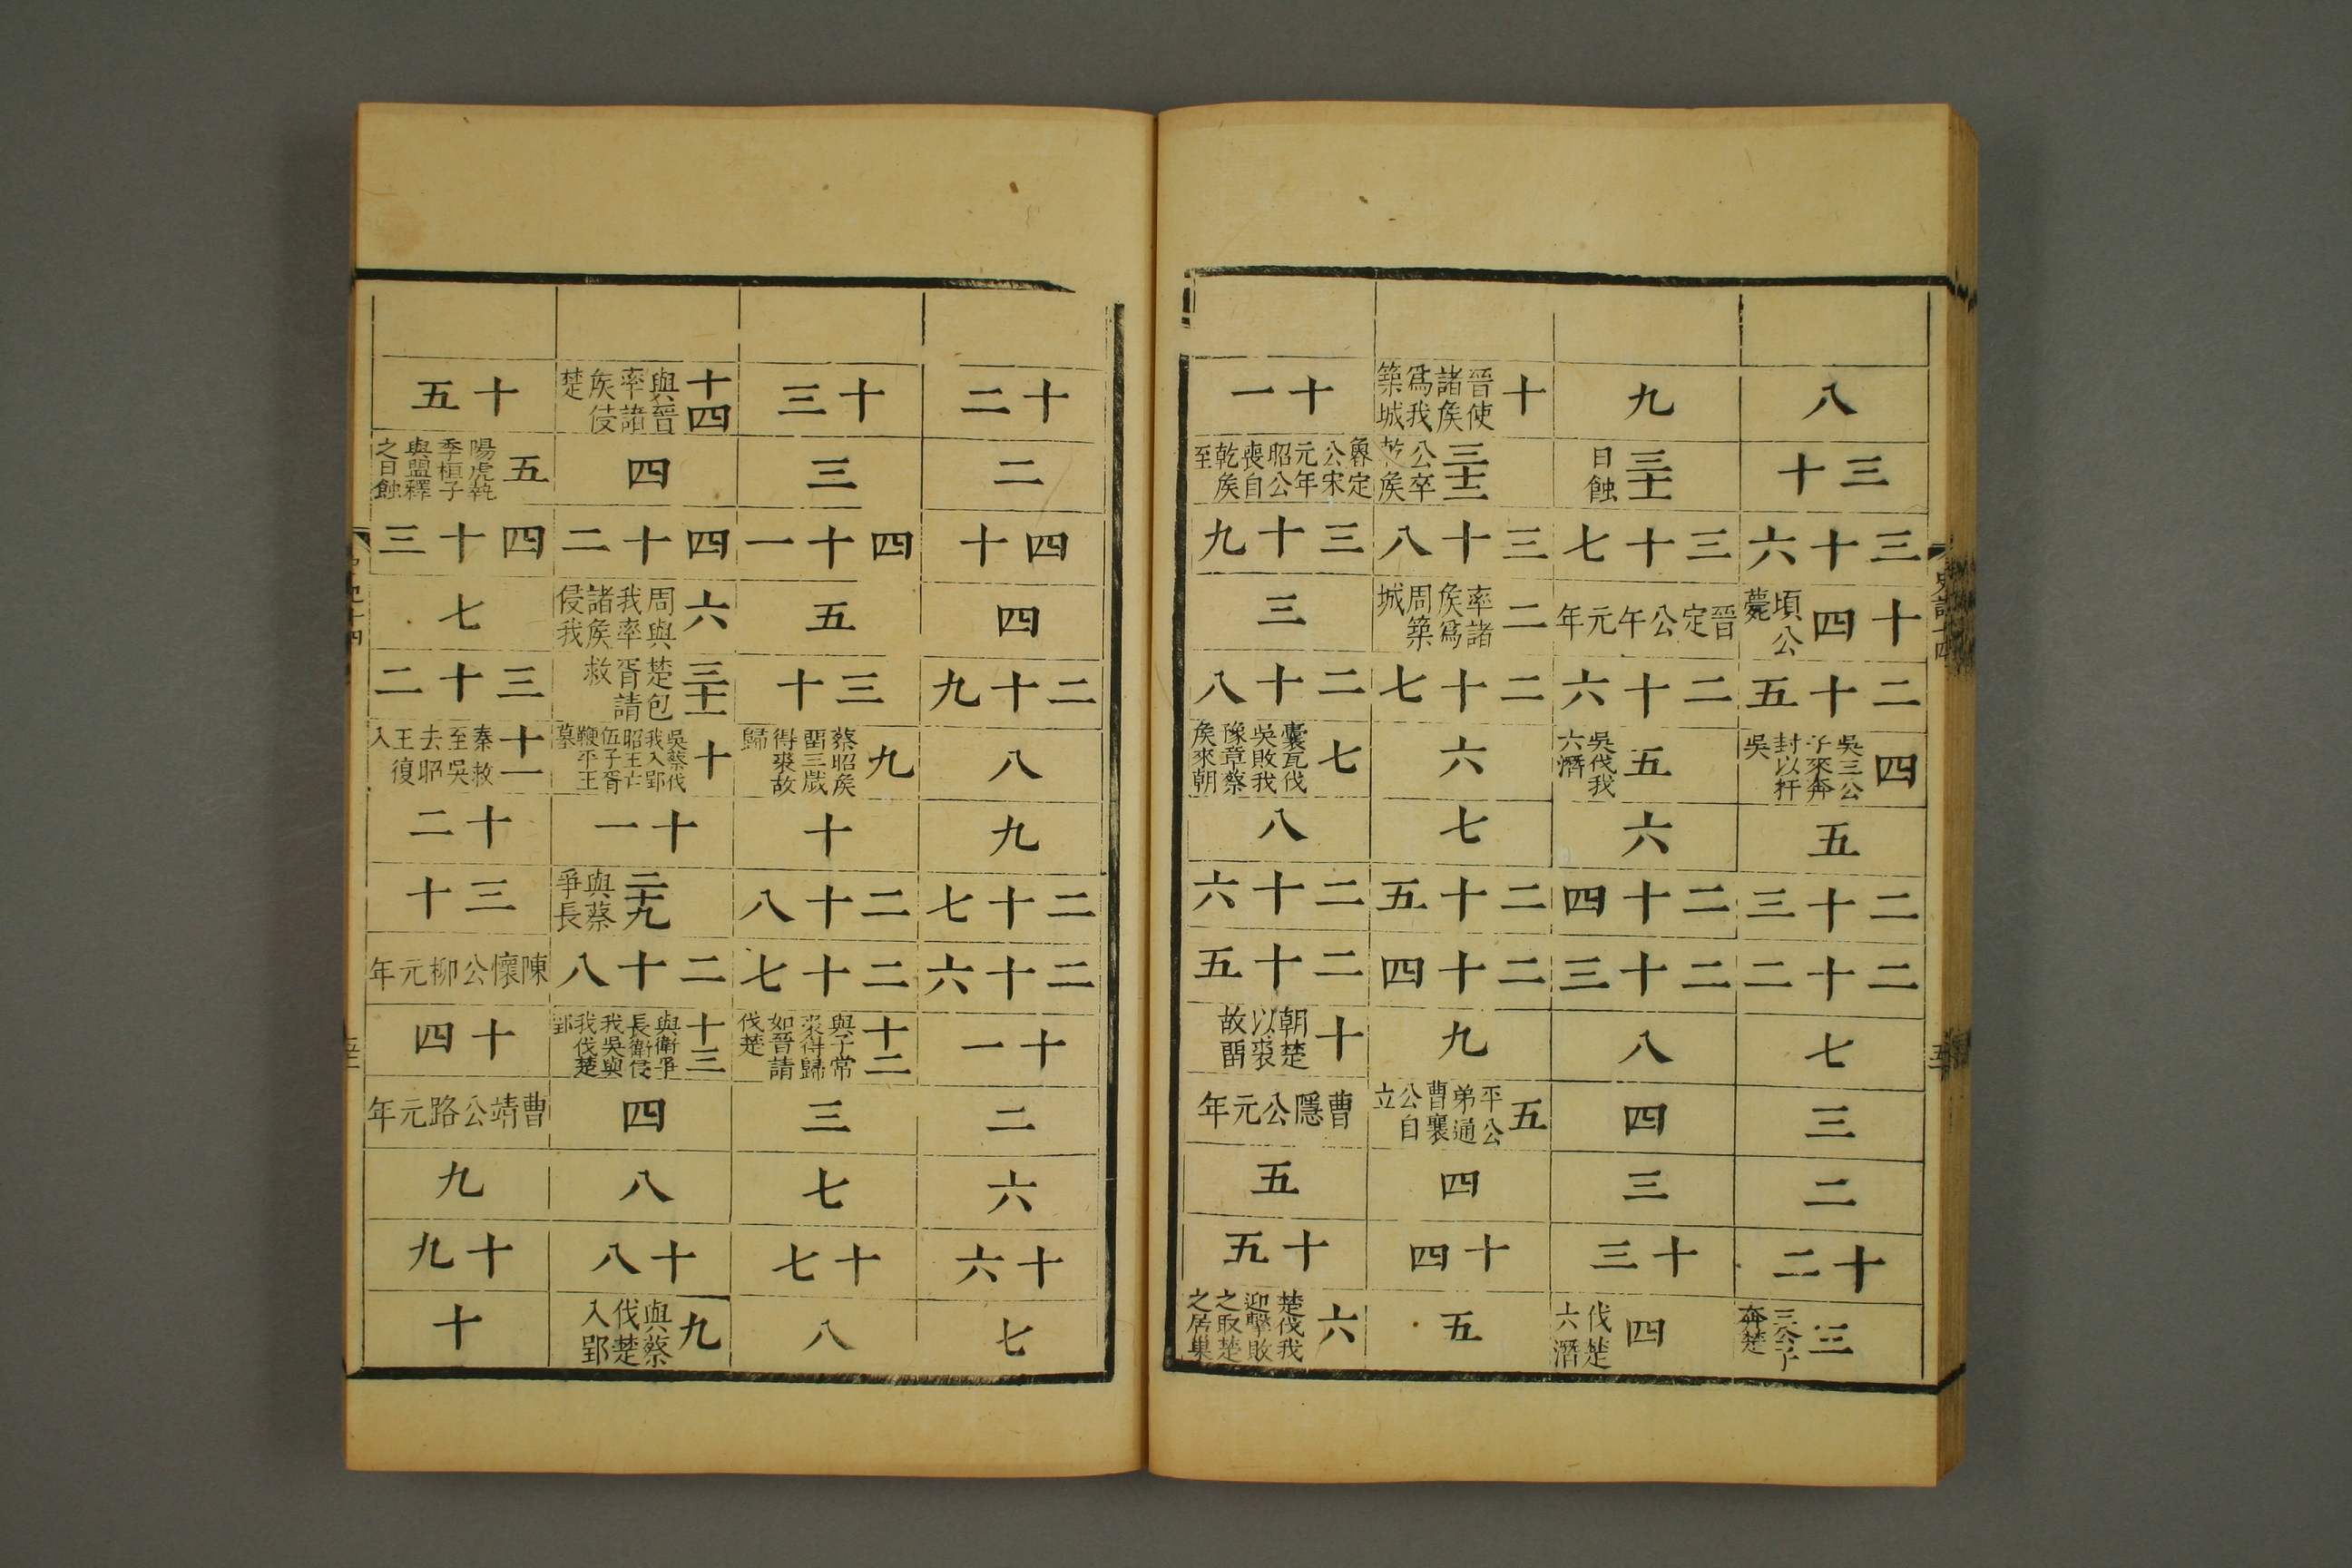 八
三十
三十六
十四 頃公薨
二十五
四 吳三公子來奔封以扞吳
五
二十三
二十二
七
三
二
十二
三 三公子奔楚
九
三十一 日蝕
三十七
晉定公午元年
二十六
五 吳伐我六潛
六
二十四
二十三
八
四
三
十三
四 伐楚六潛
十 晉使諸矦爲我築城
三十二 公卒乾矦
三十八
二 率諸矦爲周築城
二十七
六
七
二十五
二十四
九
五 平公弟通曹襄公自立
四
十四
五
十一
魯定公宋元年昭公喪自乾矦至
三十九
三
二十八
七 囊瓦伐吳敗我豫章蔡矦來朝
八
二十六
二十五
十 朝楚以裘故畱
曹隱公元年
五
十五
六 楚伐我迎擊敗之取楚之居巢
十二
二
四十
四
二十九
八
九
二十七
二十六
十一
二
六
十六
七
十三
三
四十一
五
三十
九 蔡昭矦畱三歲得裘故歸
十
二十八
二十七
十二 與子常裘得歸如晉請伐楚
三
七
十七
八
十四 與晉率諸矦侵楚
四
四十二
六 周與我率諸矦侵我
三十一 楚包胥請救
十 吳蔡伐我入郢昭王亡伍子胥鞭平王墓
十一
二十九 與蔡爭長
二十八
十三 與衛爭長衛侵我吳與我伐楚郢
四
八
十八
九 與蔡伐楚入郢
十五
五 陽虎執季桓子與盟釋之日蝕
四十三
七
三十二
十一 秦救至吳去昭王復入
十二
三十
陳懷公柳元年
十四
曹靖公路元年
九
十九
十
史記十四